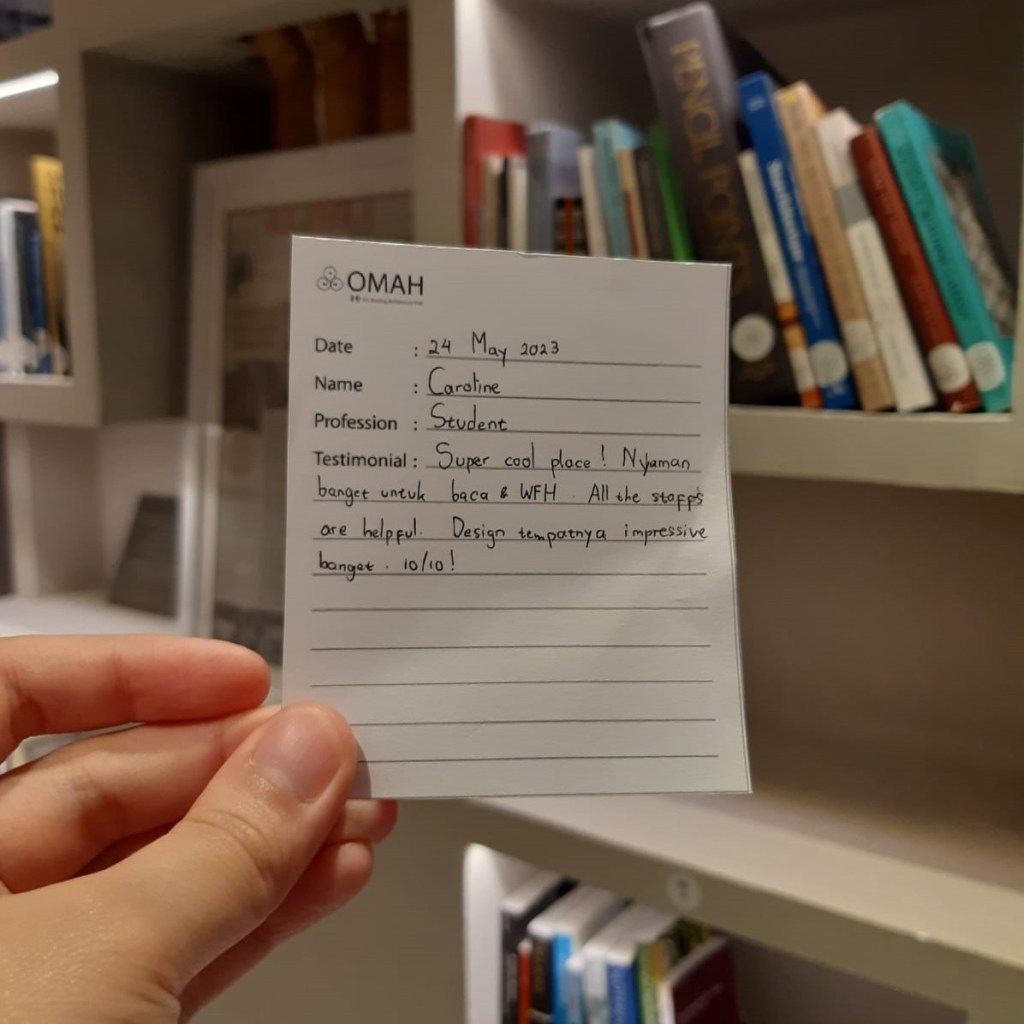 OMAH
Date : 24 May 2023
Name : Caroline
Profession : Student
Testimonial : Super cool place! Nyaman
banget untuk baca & WFH. All the staffs
are helpful. Design tempatnya impressive
banget. 10/10!
PENCIL POINTS